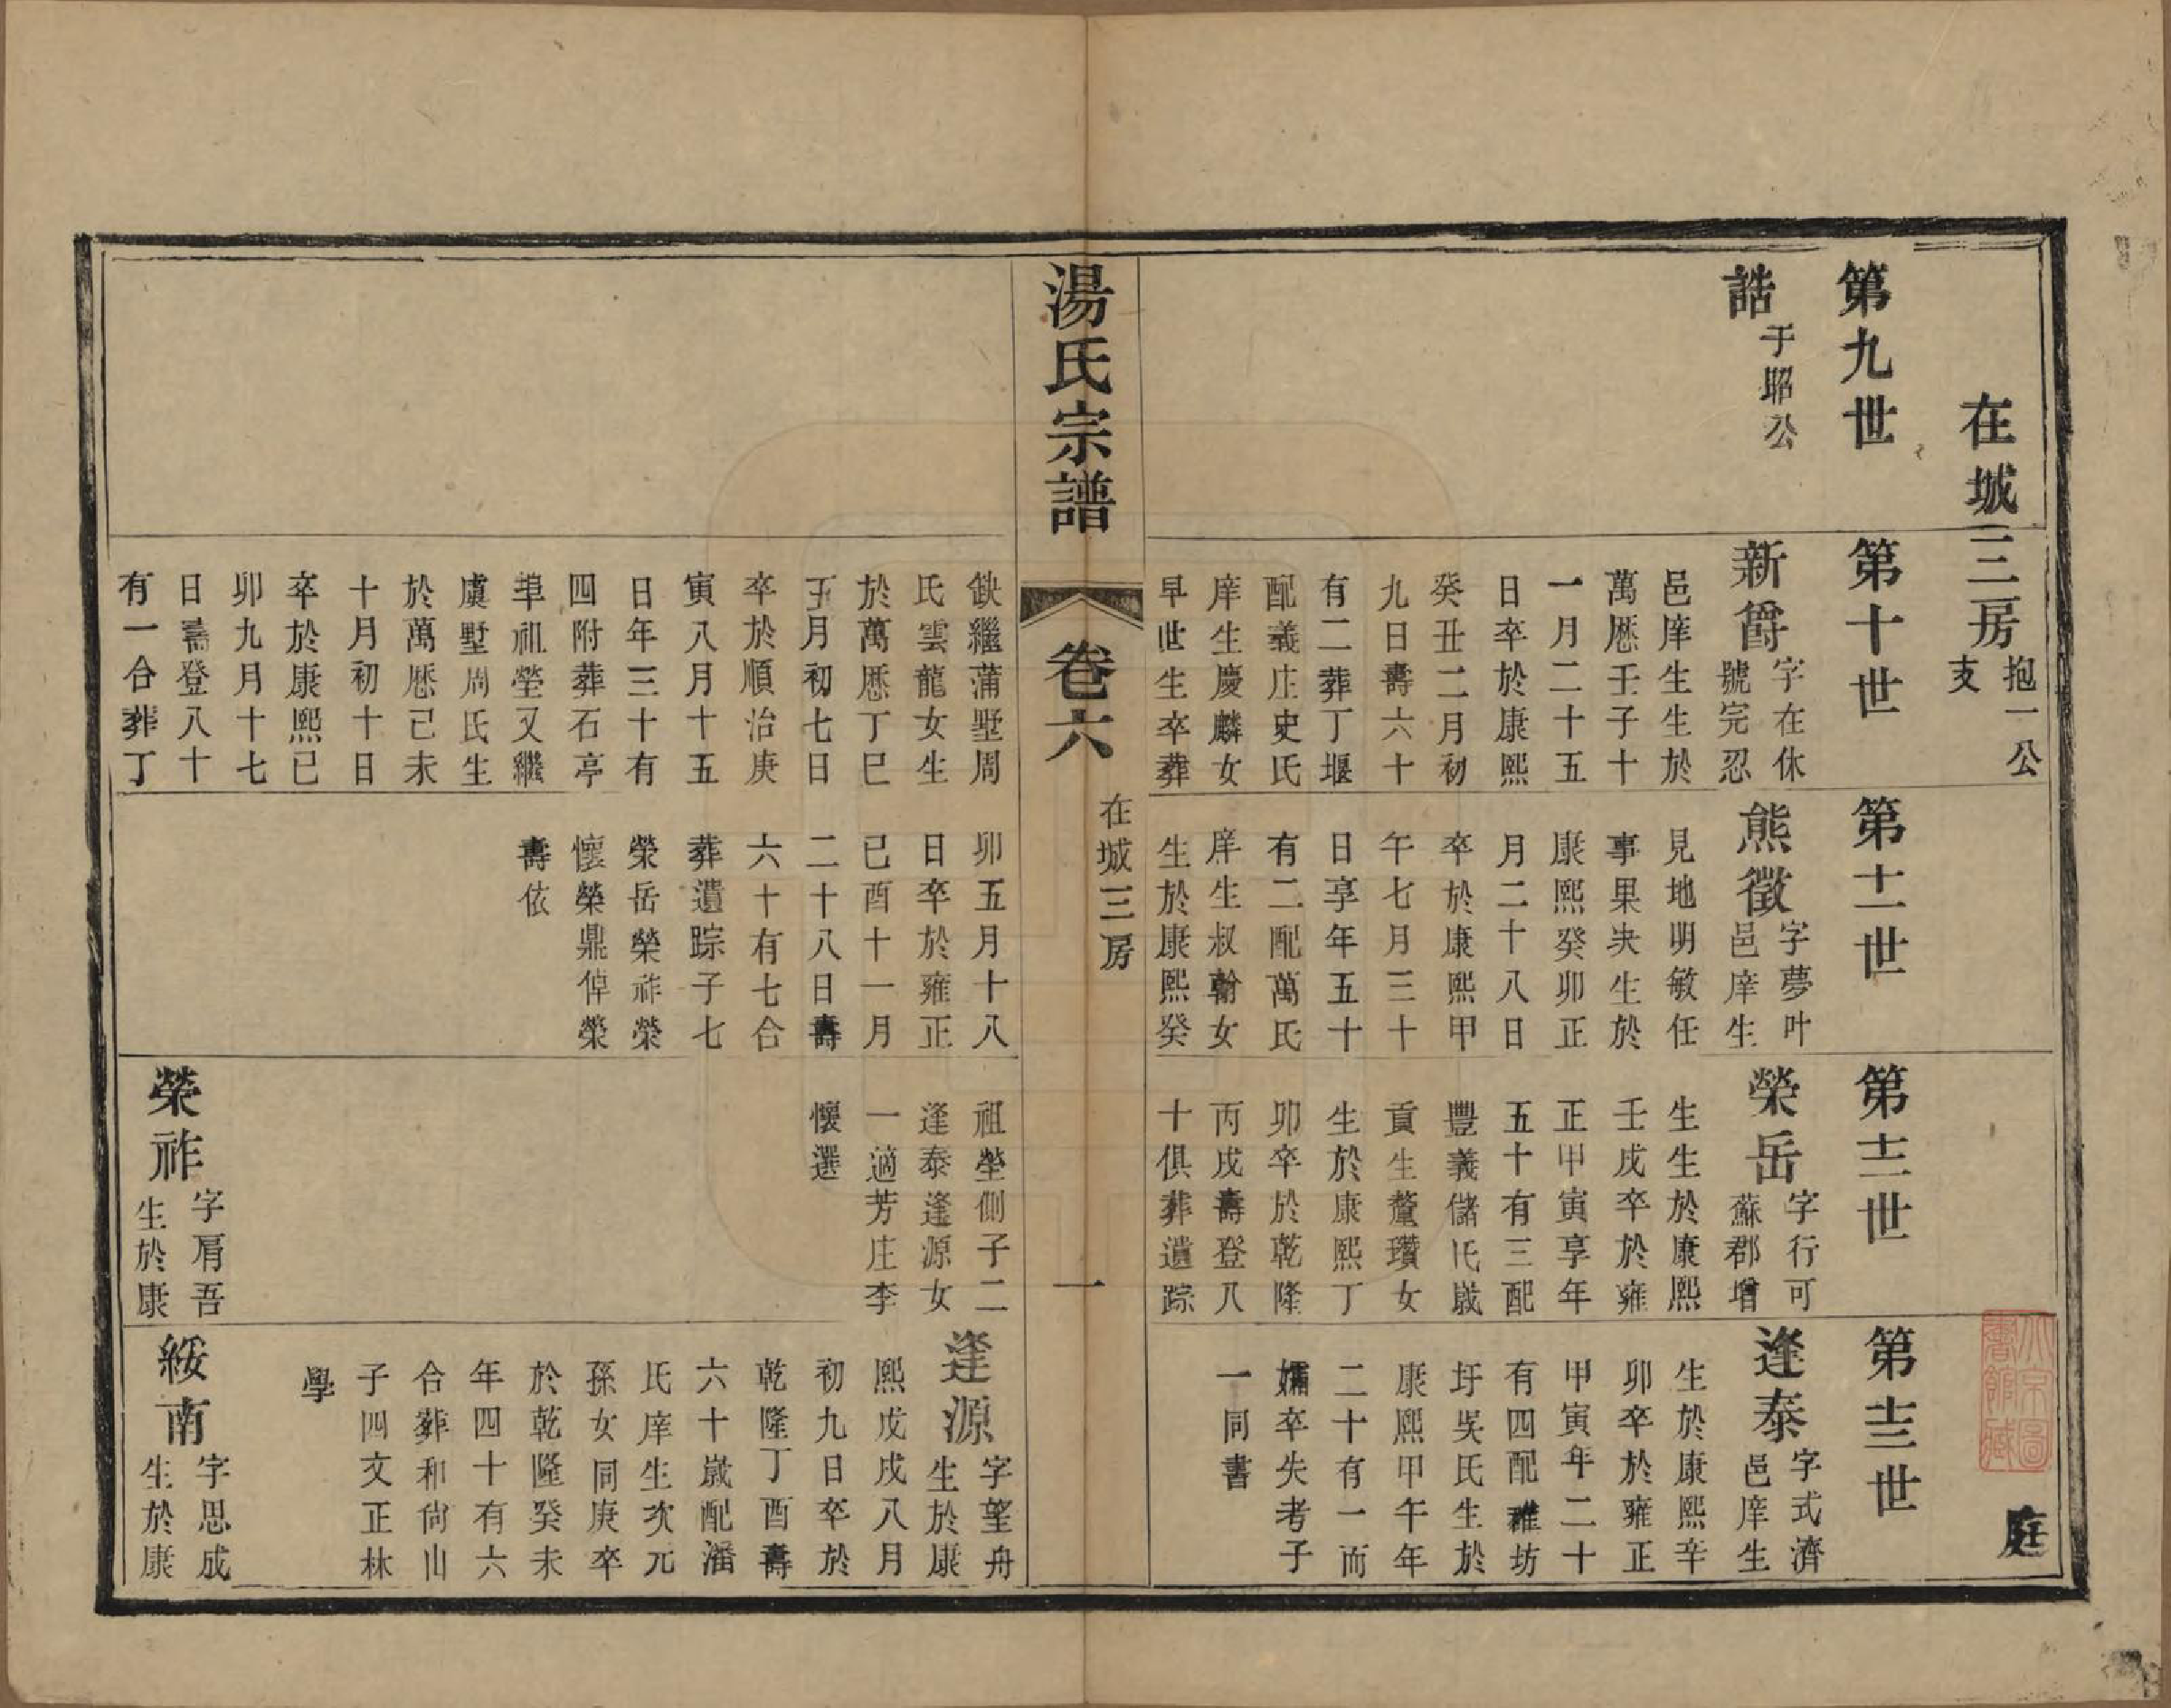 在城三房
抱一公
支
庭
第九世
誥
于昭公
第十世
新爵
字在休
號完忍
邑庠生生於
萬厯壬子十
一月二十五
日卒於康熙
癸丑二月初
九日壽六十
有二葬丁堰
配義庄史氏
庠生慶麟女
早世生卒葬
缺繼蒲墅周
氏雲龍女生
於萬厯丁巳
五月初七日
卒於順治庚
寅八月十五
日年三十有
四附葬石亭
埠祖塋又繼
虞墅周氏生
於萬厯己未
十月初十日
卒於康熙己
卯九月十七
日壽登八十
有一合葬丁
第十一世
熊徵
字夢叶
邑庠生
見地明敏任
事果决生於
康熙癸卯正
月二十八日
卒於康熙甲
午七月三十
日享年五十
有二配萬氏
庠生叔翰女
生於康熙癸
卯五月十八
日卒於雍正
己酉十一月
二十八日壽
六十有七合
葬遺踪子七
榮岳榮祚榮
懷榮鼎倬榮
壽依
第十二世
榮岳
字行可
蘇郡增
生生於康熙
壬戌卒於雍
正甲寅享年
五十有三配
豐義儲氏歲
貢生釐瓚女
生於康熙丁
卯卒於乾隆
丙戌壽登八
十俱葬遺踪
祖塋側子二
逢泰逢源女
一適芳庄李
懷選
榮祚
字肩吾
生於康
第十三世
逢泰
字式濟
邑庠生
生於康熙辛
卯卒於雍正
甲寅年二十
有四配雜坊
圩吳氏生於
康熙甲午年
二十有一而
孀卒失考子
一同書
逢源
字望舟
生於康
熙戊戌八月
初九日卒於
乾隆丁酉壽
六十歲配潘
氏庠生次元
孫女同庚卒
於乾隆癸未
年四十有六
合葬和尙山
子四文正林
學
綏南
字思成
生於康
湯氏宗譜
卷六
在城三房
一